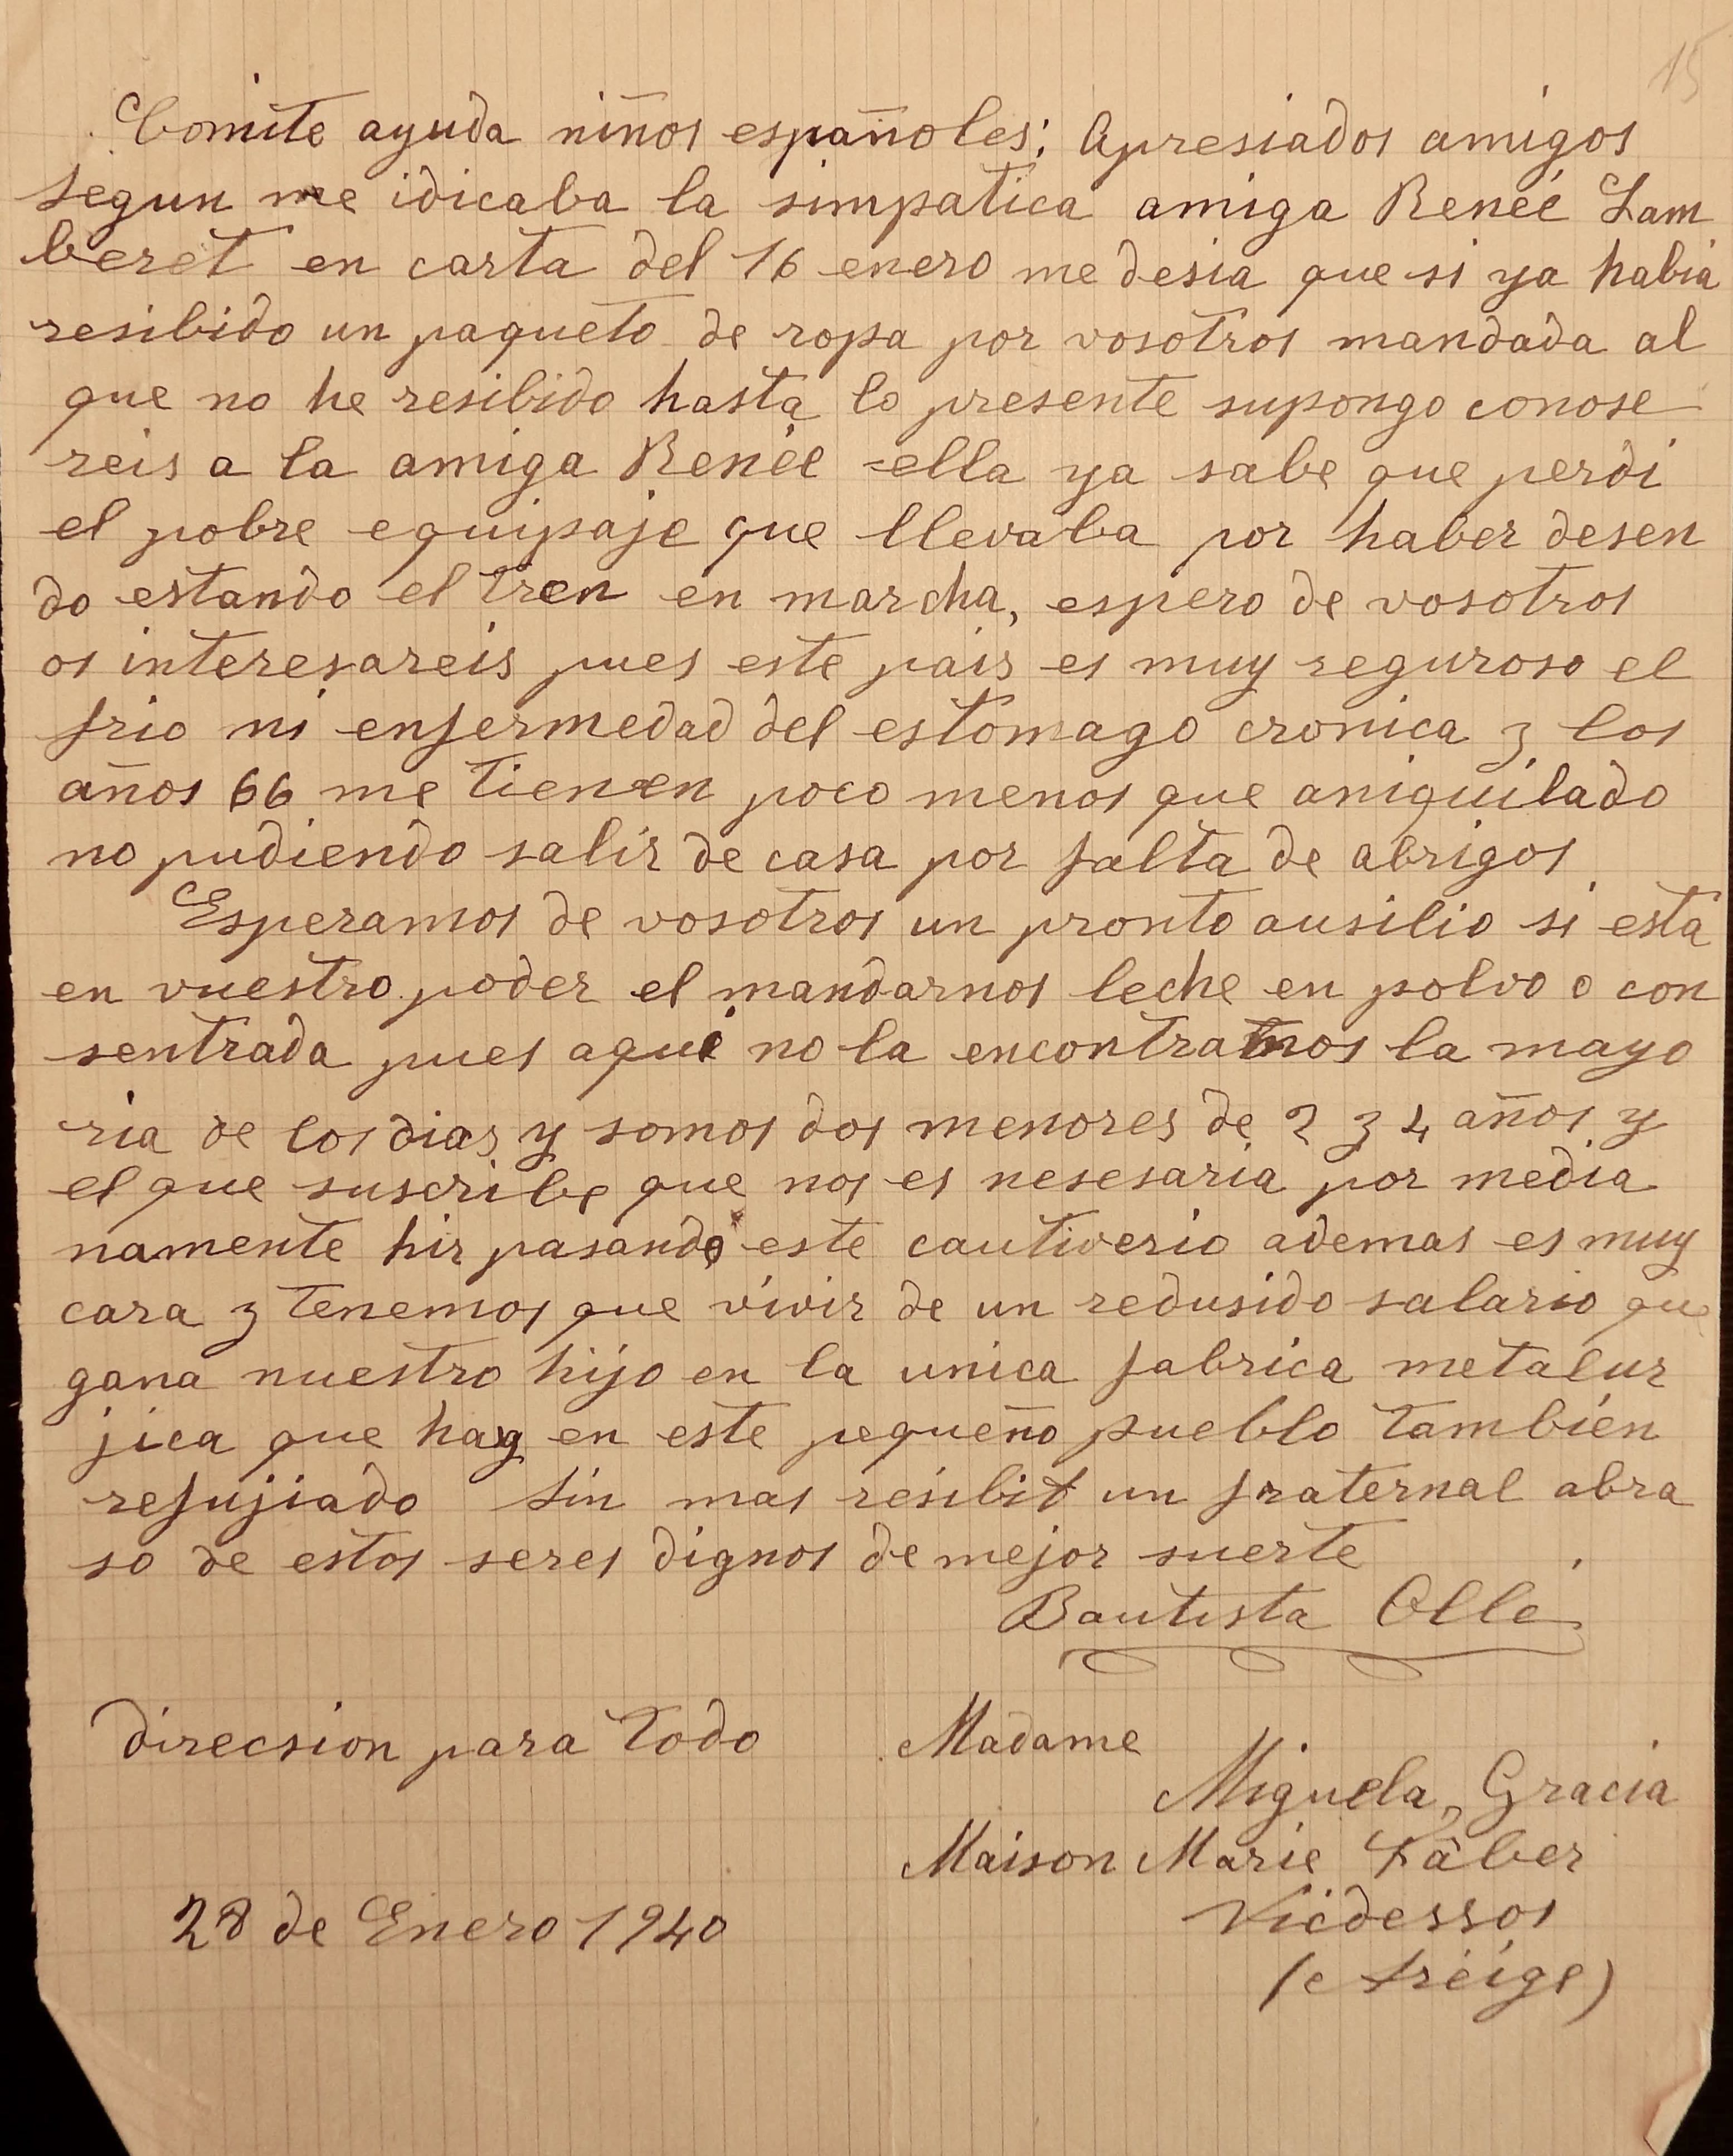 15
Comite ayuda niños españoles; Apresiados amigos
segun me idicaba la simpatica amiga Reneé Lam
beret en carta del 16 enero me desia que si ya habia
resibido un paqueto de ropa por vosotros mandada al
que no he resibido hasta lo presente supongo conose
reis a la amiga Reneé =ella ya sabe que perdi
el pobre equipaje que llevaba por haber desen
do estando el tren en marcha, espero de vosotros
os interesareis pues este pais es muy reguroso el
frio mi enfermedad del estomago cronica y los
años 66 me tienen poco menos que aniquilado
no pudiendo salir de casa por falta de abrigos
Esperamos de vosotros un pronto ausilio si esta
en vuestro poder el mandarnos leche en polvo o con
sentrada pues aqui no la encontramos la mayo
ria de los dias y somos dos menores de 2 y 4 años y
el que suscribe que nos es nesesaria por media
namente hir pasando este cautiverio ademas es muy
cara y tenemos que vivir de un redusido salario que
gana nuestro hijo en la unica fabrica metalur
jica que hay en este pequeño pueblo tambien
refujiado Sin mas resibit un fraternal abra
so de estos seres dignos de mejor suerte
Bautista Ollé
direcsion para todo Madame
Miguela Gracia
Maison Marie Faber
28 de Enero 1940 Vicdessos
(Arieige)